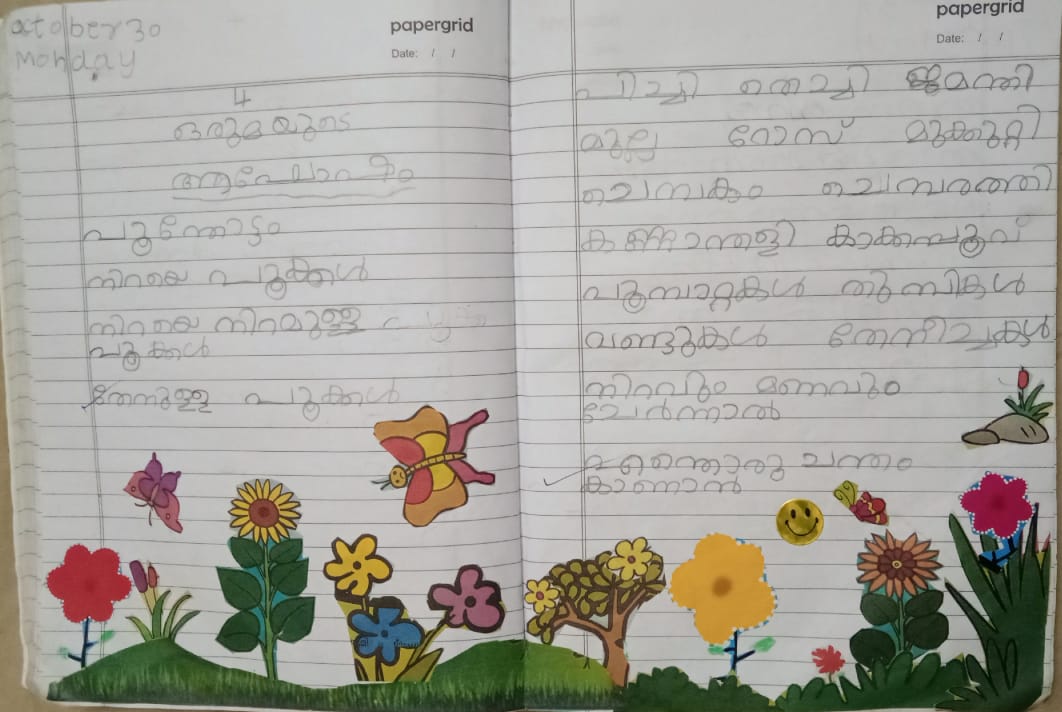 October 30
Monday
papergrid
Date: / /
4
ഒരുമയുടെ
ആഘോഷം
പൂന്തോട്ടം
നിറയെ പൂക്കൾ
നിറയെ നിറമുള്ള
പൂക്കൾ
തേനുള്ള പൂക്കൾ
papergrid
Date: / /
പിച്ചി തെച്ചി ജമന്തി
മുല്ല റോസ് മുക്കുറ്റി
ചെമ്പകം ചെമ്പരത്തി
കണ്ണാന്തളി കാക്കപ്പൂവ്
പൂമ്പാറ്റകൾ തുമ്പികൾ
വണ്ടുകൾ തേനീച്ചകൾ
നിറവും മണവും
ചേർന്നാൽ
എന്തൊരു ചന്തം
കാണാൻ